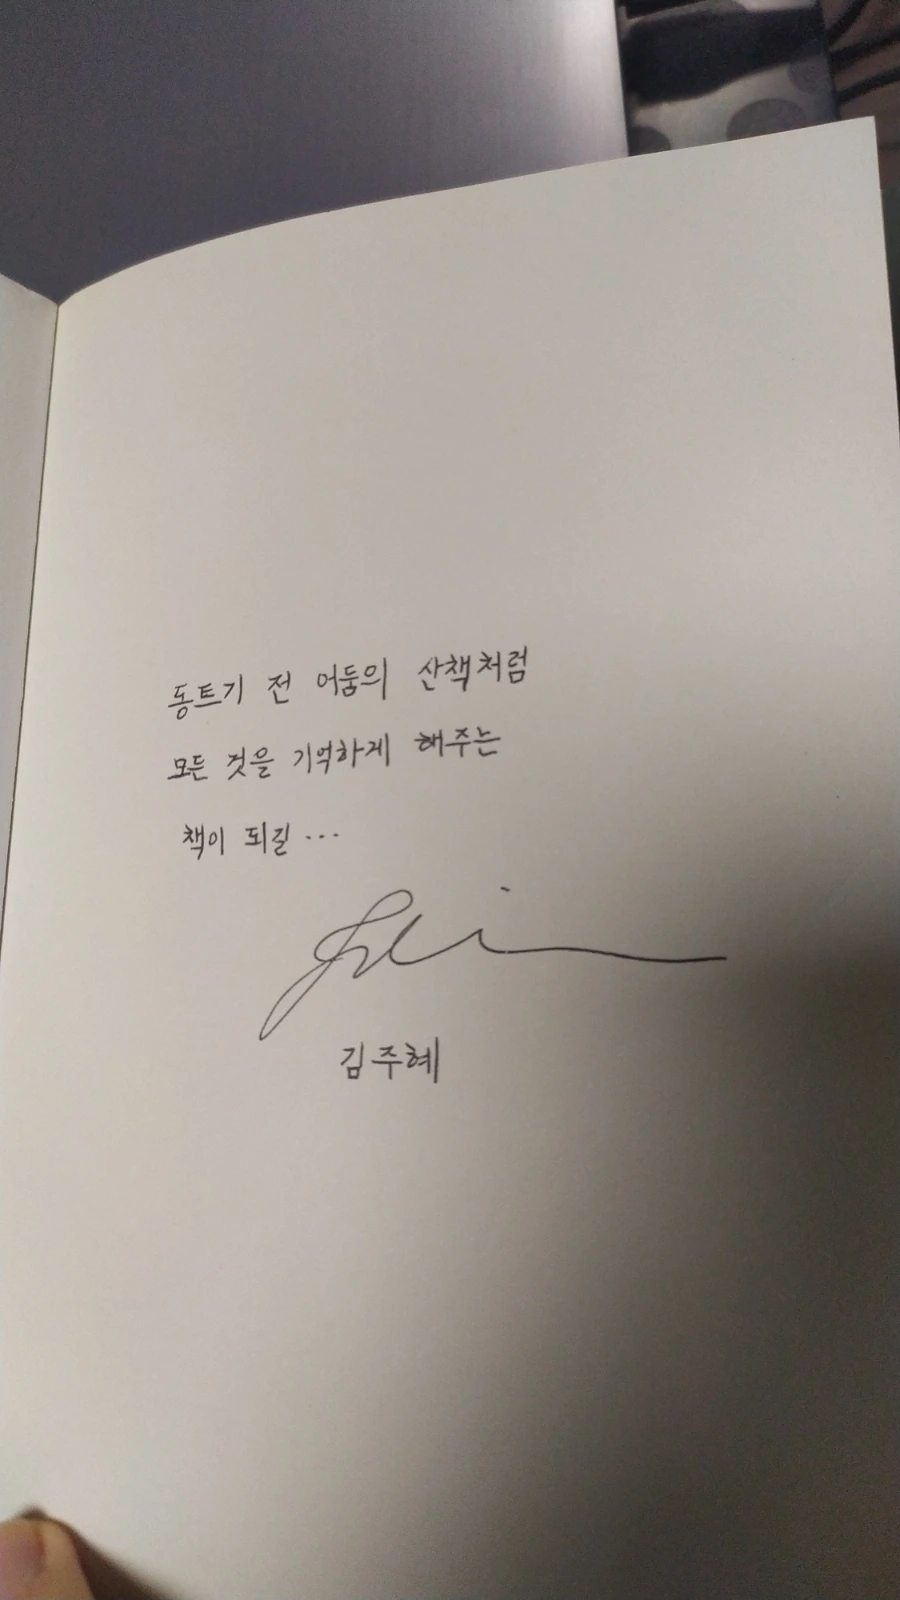 동트기 전 어둠의 산책처럼
모든 것을 기억하게 해주는
책이 되길 ...
김주혜